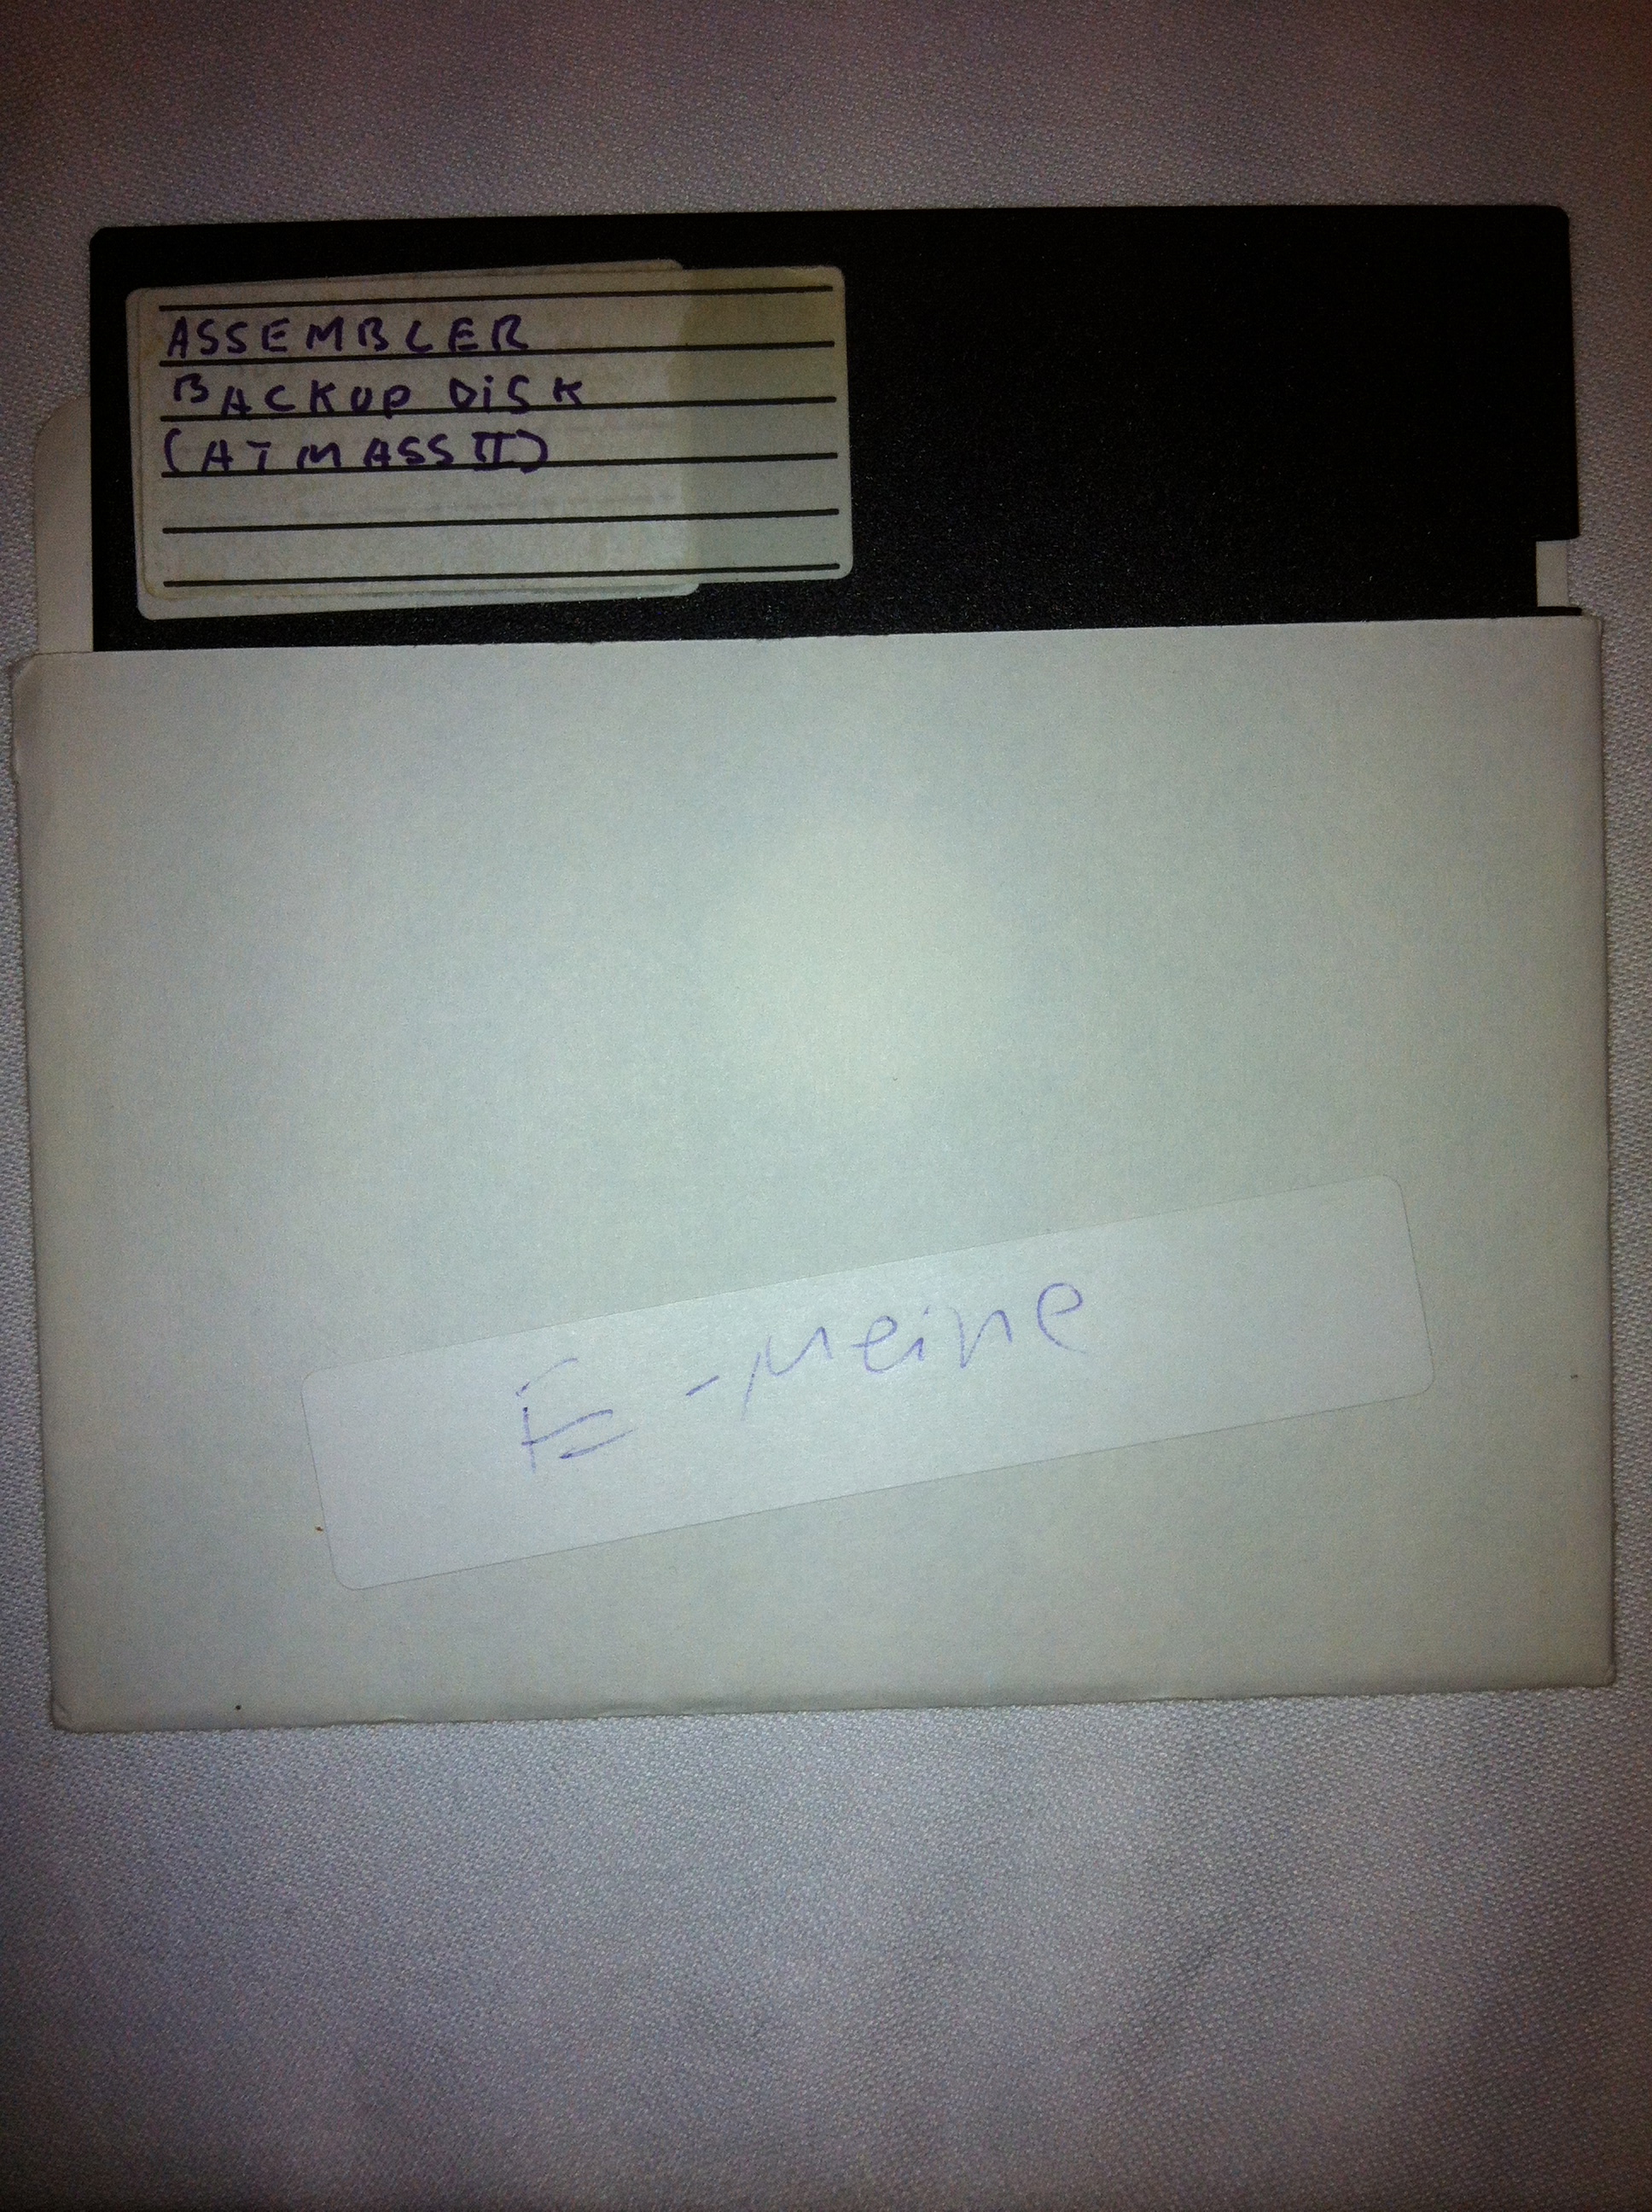 ASSEMBLER
BACKUP DiSK
(ATMASS II)
E - Meine